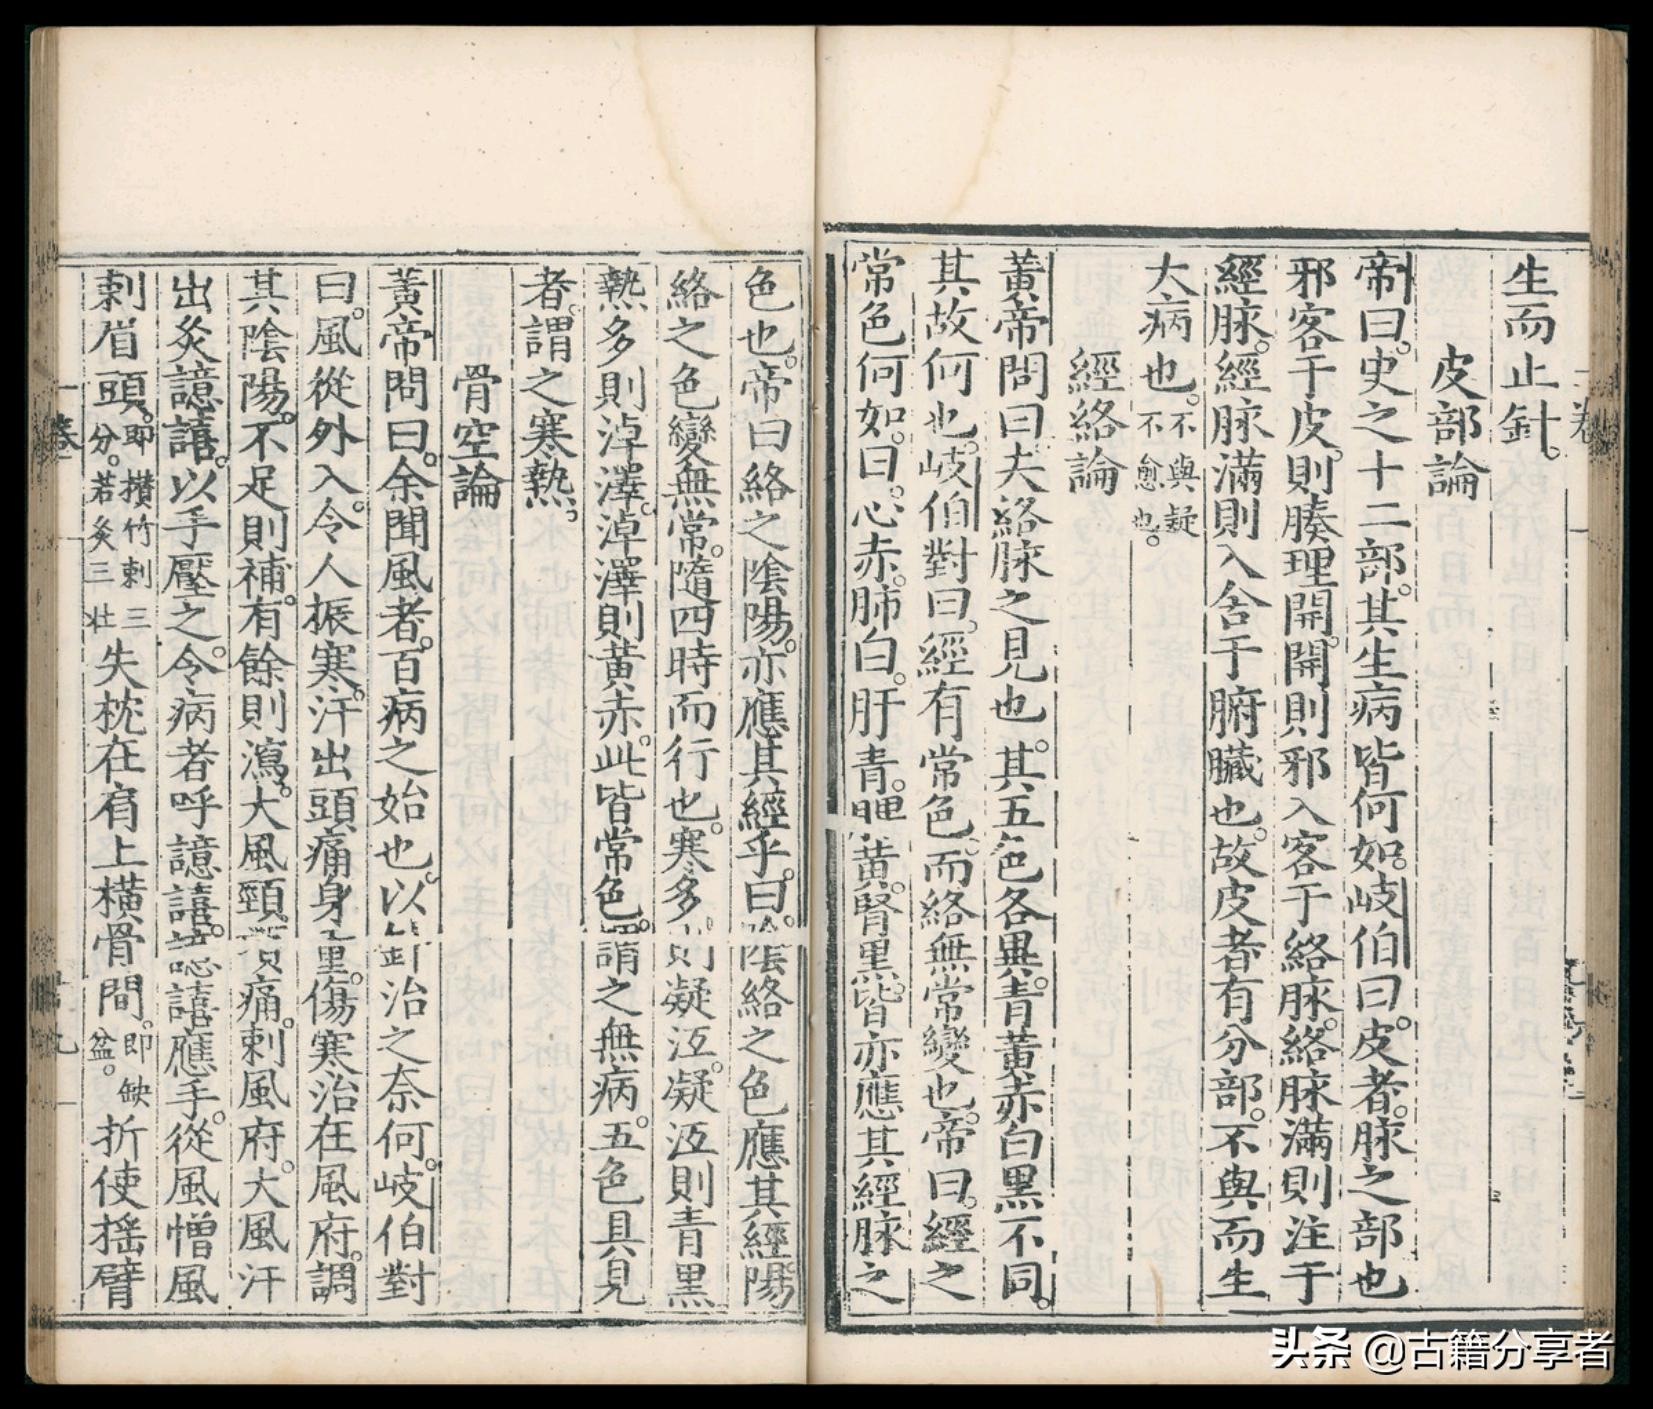 生而止針。
皮部論
帝曰。史之十二部。其生病皆何如。岐伯曰。皮者。脉之部也
邪客于皮。則腠理開。開則邪入客于絡脉。絡脉滿則注于
經脉。經脉滿則入舍于腑臟也。故皮者有分部。不與而生
大病也。不與疑不愈也。
經絡論
黃帝問曰夫絡脉之見也。其五色各異。青黃赤白黑不同。
其故何也。岐伯對曰。經有常色。而絡無常變也。帝曰。經之
常色何如。曰。心赤。肺白。肝青。脾黃。腎黑。皆亦應其經脉之
色也。帝曰絡之陰陽。亦應其經乎。曰。陰絡之色應其經。陽
絡之色變無常。隨四時而行也。寒多。則凝泣。凝泣則青黑
熱多則淖澤。淖澤則黃赤。此皆常色。謂之無病。五色具見
者。謂之寒熱。
骨空論
黃帝問曰。余聞風者。百病之始也。以針治之奈何。岐伯對
曰。風從外入。令人振寒。汗出頭痛身重。傷寒治在風府。調
其陰陽。不足則補。有餘則瀉。大風頸項痛。刺風府。大風汗
出灸譩譆。以手壓之。令病者呼譩譆。譩譆應手。從風憎風
刺眉頭。即攢竹刺三分。若灸三壯失枕在肩上橫骨間。即缺盆。折使搖臂
卷
頭条 @古籍分享者